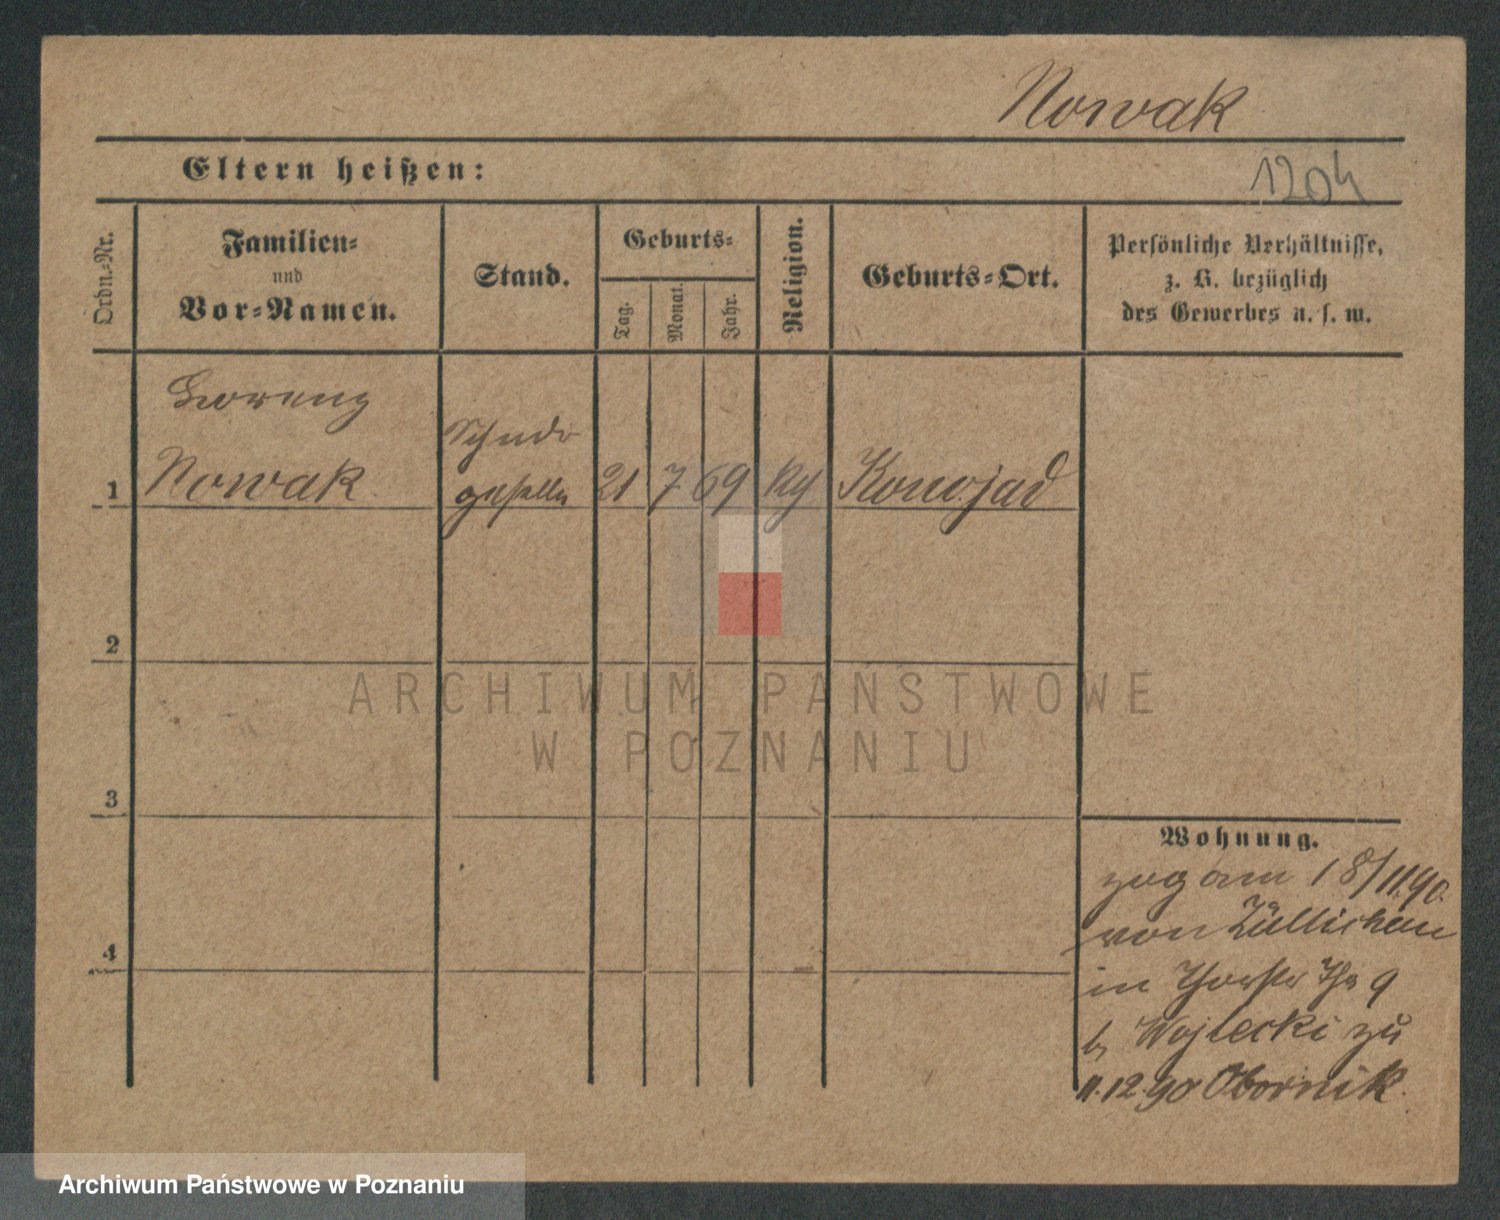 Nowak
Eltern heißen:
1204
Ordn.-Nr.
Familien-
und
Vor-Namen.
Stand.
Geburts-
Tag.
Monat.
Jahr.
Religion.
Geburts-Ort.
Persönliche Verhältnisse,
z. B. bezüglich
des Gewerbes u. s. w.
Lorenz
1 Nowak
geselle
21 7 69
Konojad
2
3
4
Wohnung.
zog am 18/11.90.
von Züllichau
in 9
b. Wojtecki zu
11.12.90 Obornik.
ARCHIWUM PAŃSTWOWE
W POZNANIU
Archiwum Państwowe w Poznaniu